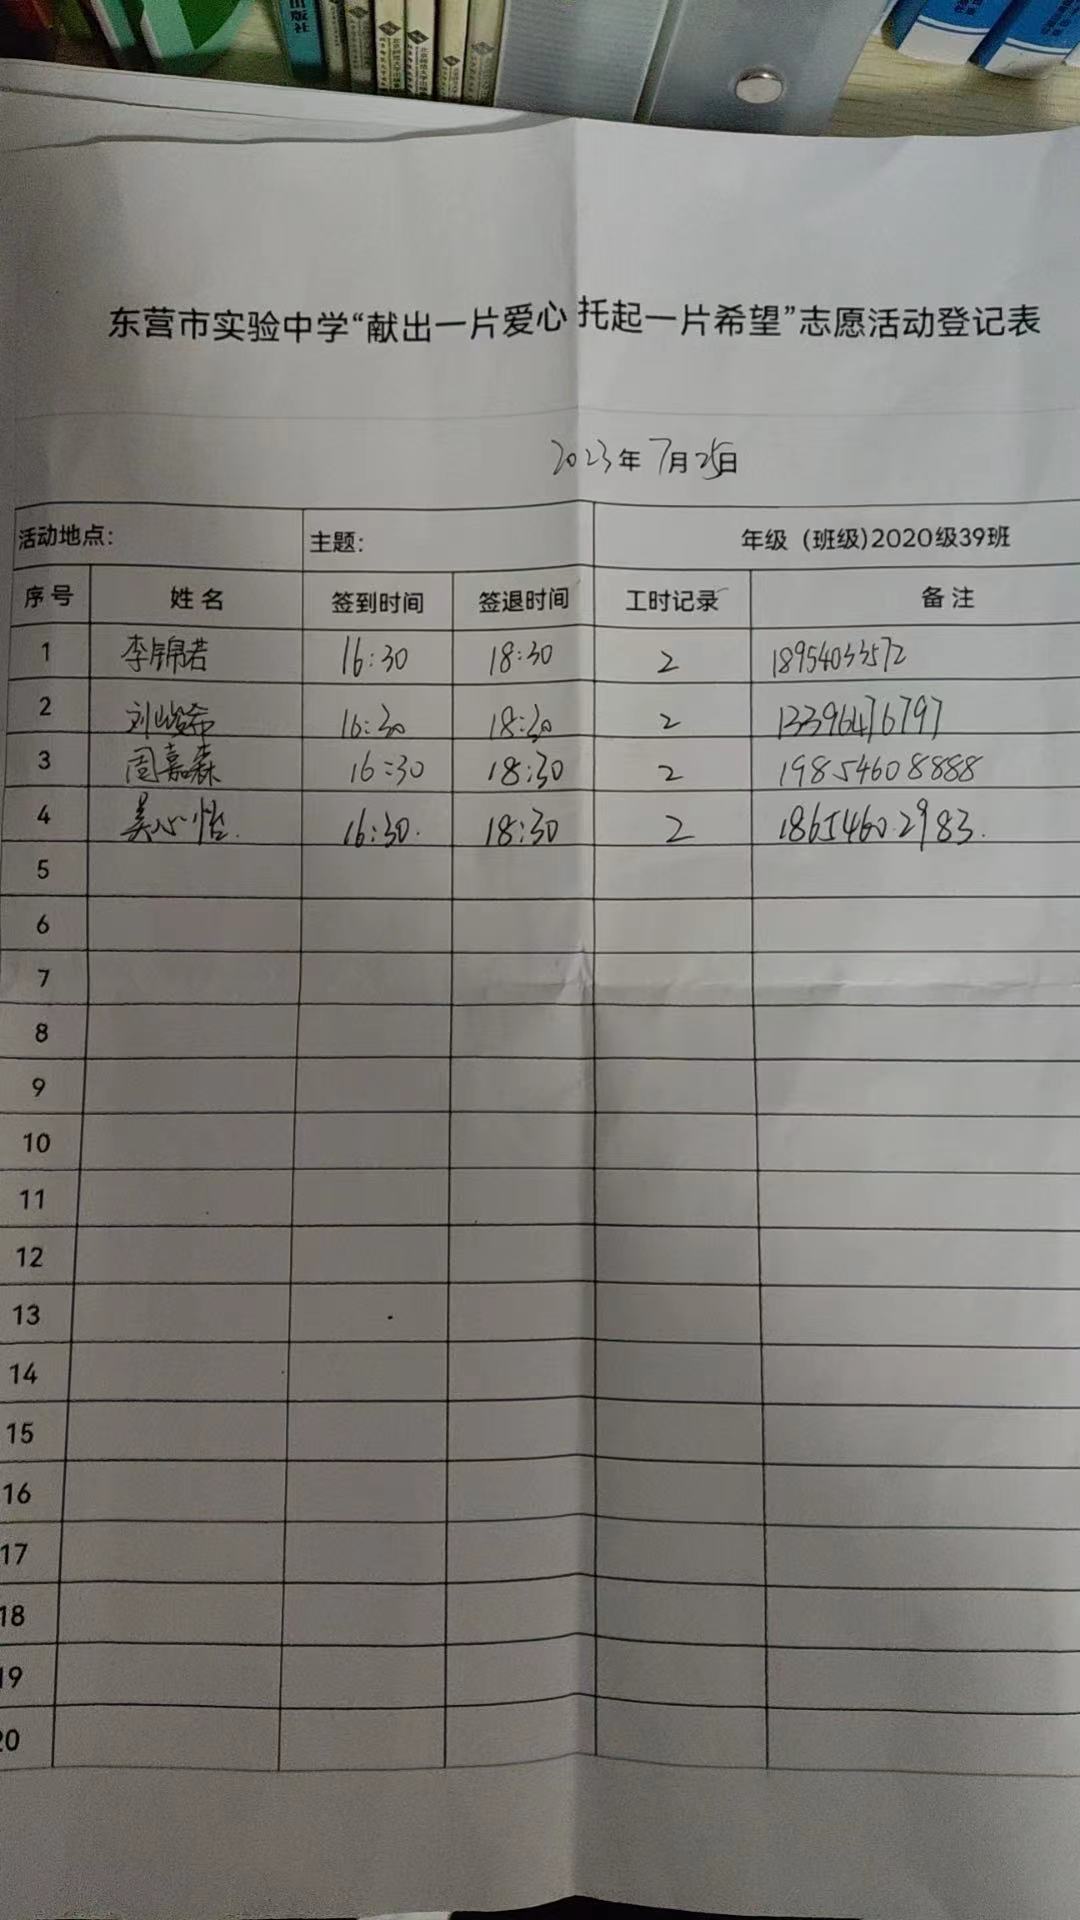 出版社
东营市实验中学“献出一片爱心 托起一片希望”志愿活动登记表
2023年 7月 25日
活动地点: 主题: 年级（班级)2020级39班
序号 姓名 签到时间 签退时间 工时记录 备注
1 李锦若 16:30 18:30 2 18954033572
2 刘峻希 16:30 18:30 2 13396476797
3 周嘉森 16:30 18:30 2 19854608888
4 吴心怡. 16:30. 18:30 2 18654602983.
5
6
7
8
9
10
11
12
13
14
15
16
17
18
19
20